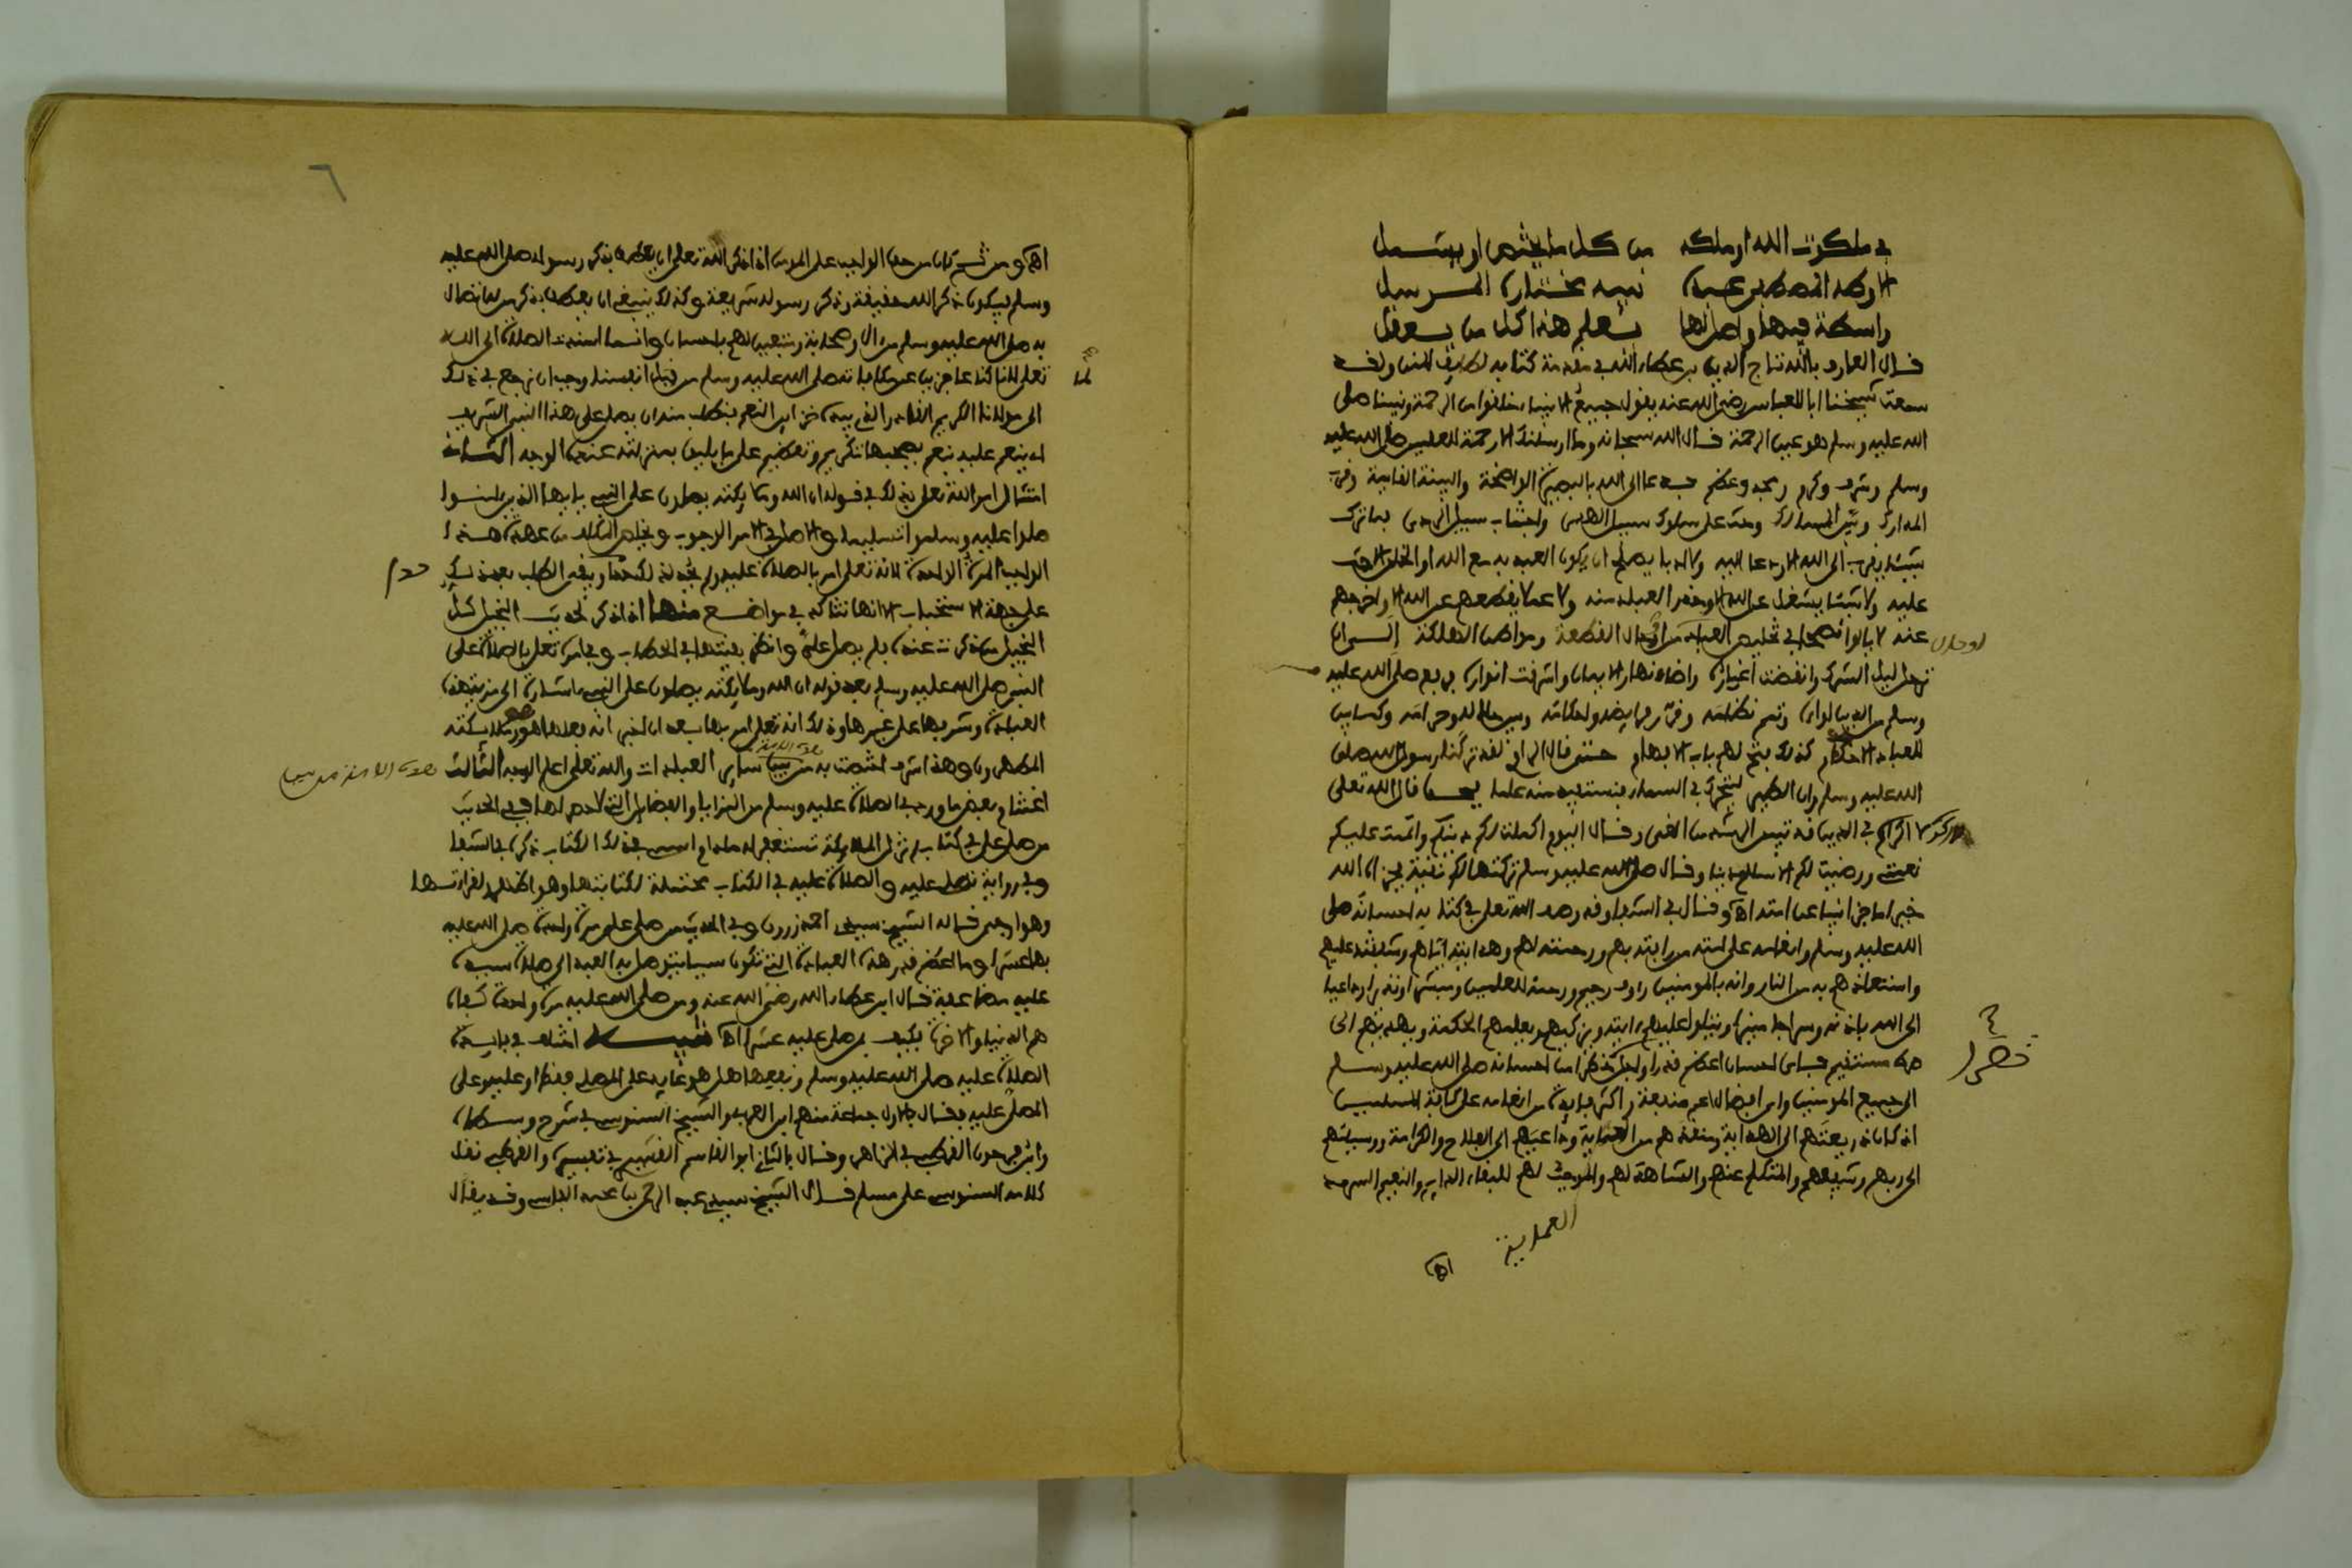 في ملكوت الله او ملكه من كل ما يختص او يشمل
الا وطه المصطفى عبده نبيه مختاره المرسل
واسطة فيها واصل لها يعلم هذا كل من يعقل
قال العارف بالله تاج الدين بن عطاء الله في مقدمة كتابه لطايف المنن ولقد
سمعت شيخنا ابا العباس رضي الله عنه يقول جميع الانبياء خلقوا من الرحمة ونبينا صلى
الله عليه وسلم هو عين الرحمة قال الله سبحانه وما ارسلنك الا رحمة للعلمين صلى الله عليه
وسلم وشرف وكرم ومجد وعظم فدعا الى الله بالبصيرة الواضحة والبينة الفاتية وقرب
المدارك وبين المسالك وحث على سلوك سبيل الهدى واجتناب سبيل الردى فما ترك
شيئا يقرب الى الله الا ودعا اليه ولا ادبا يصلح ان يكون العبد به مع الله الا حث
عليه ولا شيئا يشغل عن الله الا وحذر العباد منه ولا عملا يقطعهم عن الله الا واخرجهم
عنه لا يالوا نصحا في تخليص العباد من اوحال القطيعة ومواطن الهلكة الى ان
ترحل ليل الشرك وانقضت اغياره واضاء نهار الايمان واشرقت انواره فرفع صلى الله عليه
وسلم من الدين لواءه وتمم نظامه وقرر فرايضه واحكامه وبين حلاله وحرامه وكما بين
للعباد الاحكام كذلك فتح لهم باب الافهام حتى قال الراوي لقد تركنا رسول الله صلى
الله عليه وسلم وان الطير ليتحرك في السماء فنستفيد منه علما قال الله تعالى
لا اكراه في الدين قد تبين الرشد من الغي وقال اليوم اكملت لكم دينكم واتممت عليكم
نعمتي ورضيت لكم الاسلام دينا وقال صلى الله عليه وسلم تركتها لكم نقية فجزاه الله
خير ما جزى انبياء عن امته اه وقال في الشفا وقد وصف الله تعالى في كتابه احسانه صلى
الله عليه وسلم وانعامه على امته من رافته بهم ورحمته لهم وهدايته اياهم وشفقته عليهم
واستنقاذهم به من النار وانه بالمومنين راوف رحيم ورحمة للعلمين ومبشرا ونذيرا وداعيا
الى الله باذنه وسراجا منيرا ويتلوا عليهم ءايته ويزكيهم ويعلمهم الحكمة ويهديهم الى
صراط مستقيم فباي احسان اعظم قدرا واجل خطرا من احسانه صلى الله عليه وسلم
الى جميع المومنين واي افضال اعم منفعة واكثر فايدة من انعامه على كافة المسلمين
اذ كان ذريعتهم الى الهداية ومنقذهم من العماية وداعيهم الى الفلاح والكرامة ووسيلتهم
الى ربهم وشفيعهم والمتكلم عنهم والشاهد لهم والموجب لهم للبقاء الدايم والنعيم السرمد
اه
خطرا
٦
اه ومن ثم كان من حق الواجب على المومن اذا ذكر الله تعلى ان يعقبه بذكر رسوله صلى الله عليه
وسلم فيكون ذكر الله حقيقة وذكر رسوله شريعة وكذلك ينبغي ان يعقبه بذكر من له اتصال
به صلى الله عليه وسلم من ال وصحابة ومتبعين لهم باحسان وانما اسندت الصلاة الى الله
تعلى لاننا كنا عاجزين عن مكافاته صلى الله عليه وسلم من قبل انفسنا وجب ان نرجع في ذلك
الى مولانا الكريم القادر الذي بيده خزاين النعم بنطلب منه ان يصلي على هذا النبي الشريف
اي ينعم عليه بنعم يصحبها تكريم وتعظيم على ما يليق بمنزلته عنده الوجه الثاني
امتثال امر الله تعلى بذلك في قوله ان الله وملايكته يصلون على النبي يايها الذين ءامنوا
صلوا عليه وسلموا تسليما والاصل في الامر الوجوب ويخلص المكلف من عهدة هذا
الواجب المرة الواحدة لانه تعلى امر بالصلاة عليه ولم يحد لذلك حدا وبقي الطلب بعد ذلك
على جهة الاستحباب الا انها تتاكد في مواضع منها اذا ذكر لحديث البخيل كل
البخيل من ذكرت عنده فلم يصل علي وانظر بقيتها في الحطاب وفي امره تعلى بالصلاة على
النبي صلى الله عليه وسلم بعد قوله ان الله وملايكته يصلون على النبي اشارة الى مزية هذه
العبادة وشرفها على غيرها وذلك انه تعلى امر بها بعد ان اخبر انه فعلها هو وملايكته
المطهرون وهذا شرف اختصت به من بين ساير العبادات والله تعلى اعلم الوجه الثالث
اغتنام بعض ما ورد في الصلاة عليه وسلم من المزايا والفضايل التي لا حصر لها ففي الحديث
من صلى علي في كتاب لم تزل الملايكة تستغفر له ما دام اسمي في ذلك الكتاب ذكره في الشفا
وفي رواية تصلي عليه والصلاة عليه في الكتاب محتملة لكتابتها وهو اظهر ولقراءتها
وهو ارجى قاله الشيخ سيدي احمد زروق وفي الحديث من صلى علي مرة واحدة صلى الله عليه
بها عشرا وما اعظم قدر هذه العبادة التي تكون سببا يتوصل به العبد الى صلاة سيده
عليه مضاعفة قال ابن عطاء الله رضي الله عنه ومن صلى الله عليه مرة واحدة كفاه
هم الدنيا والاخرة فكيف بمن صلى عليه عشرا اه تنبيه اختلف في فايدة
الصلاة عليه صلى الله عليه وسلم ونفعها هل هو عايد على المصلي فقط او عليه وعلى
المصلى عليه فقال بالاول جماعة منهم ابن العربي والشيخ السنوسي في شرح وسطاه
وابن فرحون القرطبي في الزاهر وقال بالثاني ابو القاسم القشيري في تفسيره والقرطبي نقل
كلامه السنوسي على مسلم قال الشيخ سيدي عبد الرحمن بن عبد القادر الفاسي وقد يقال